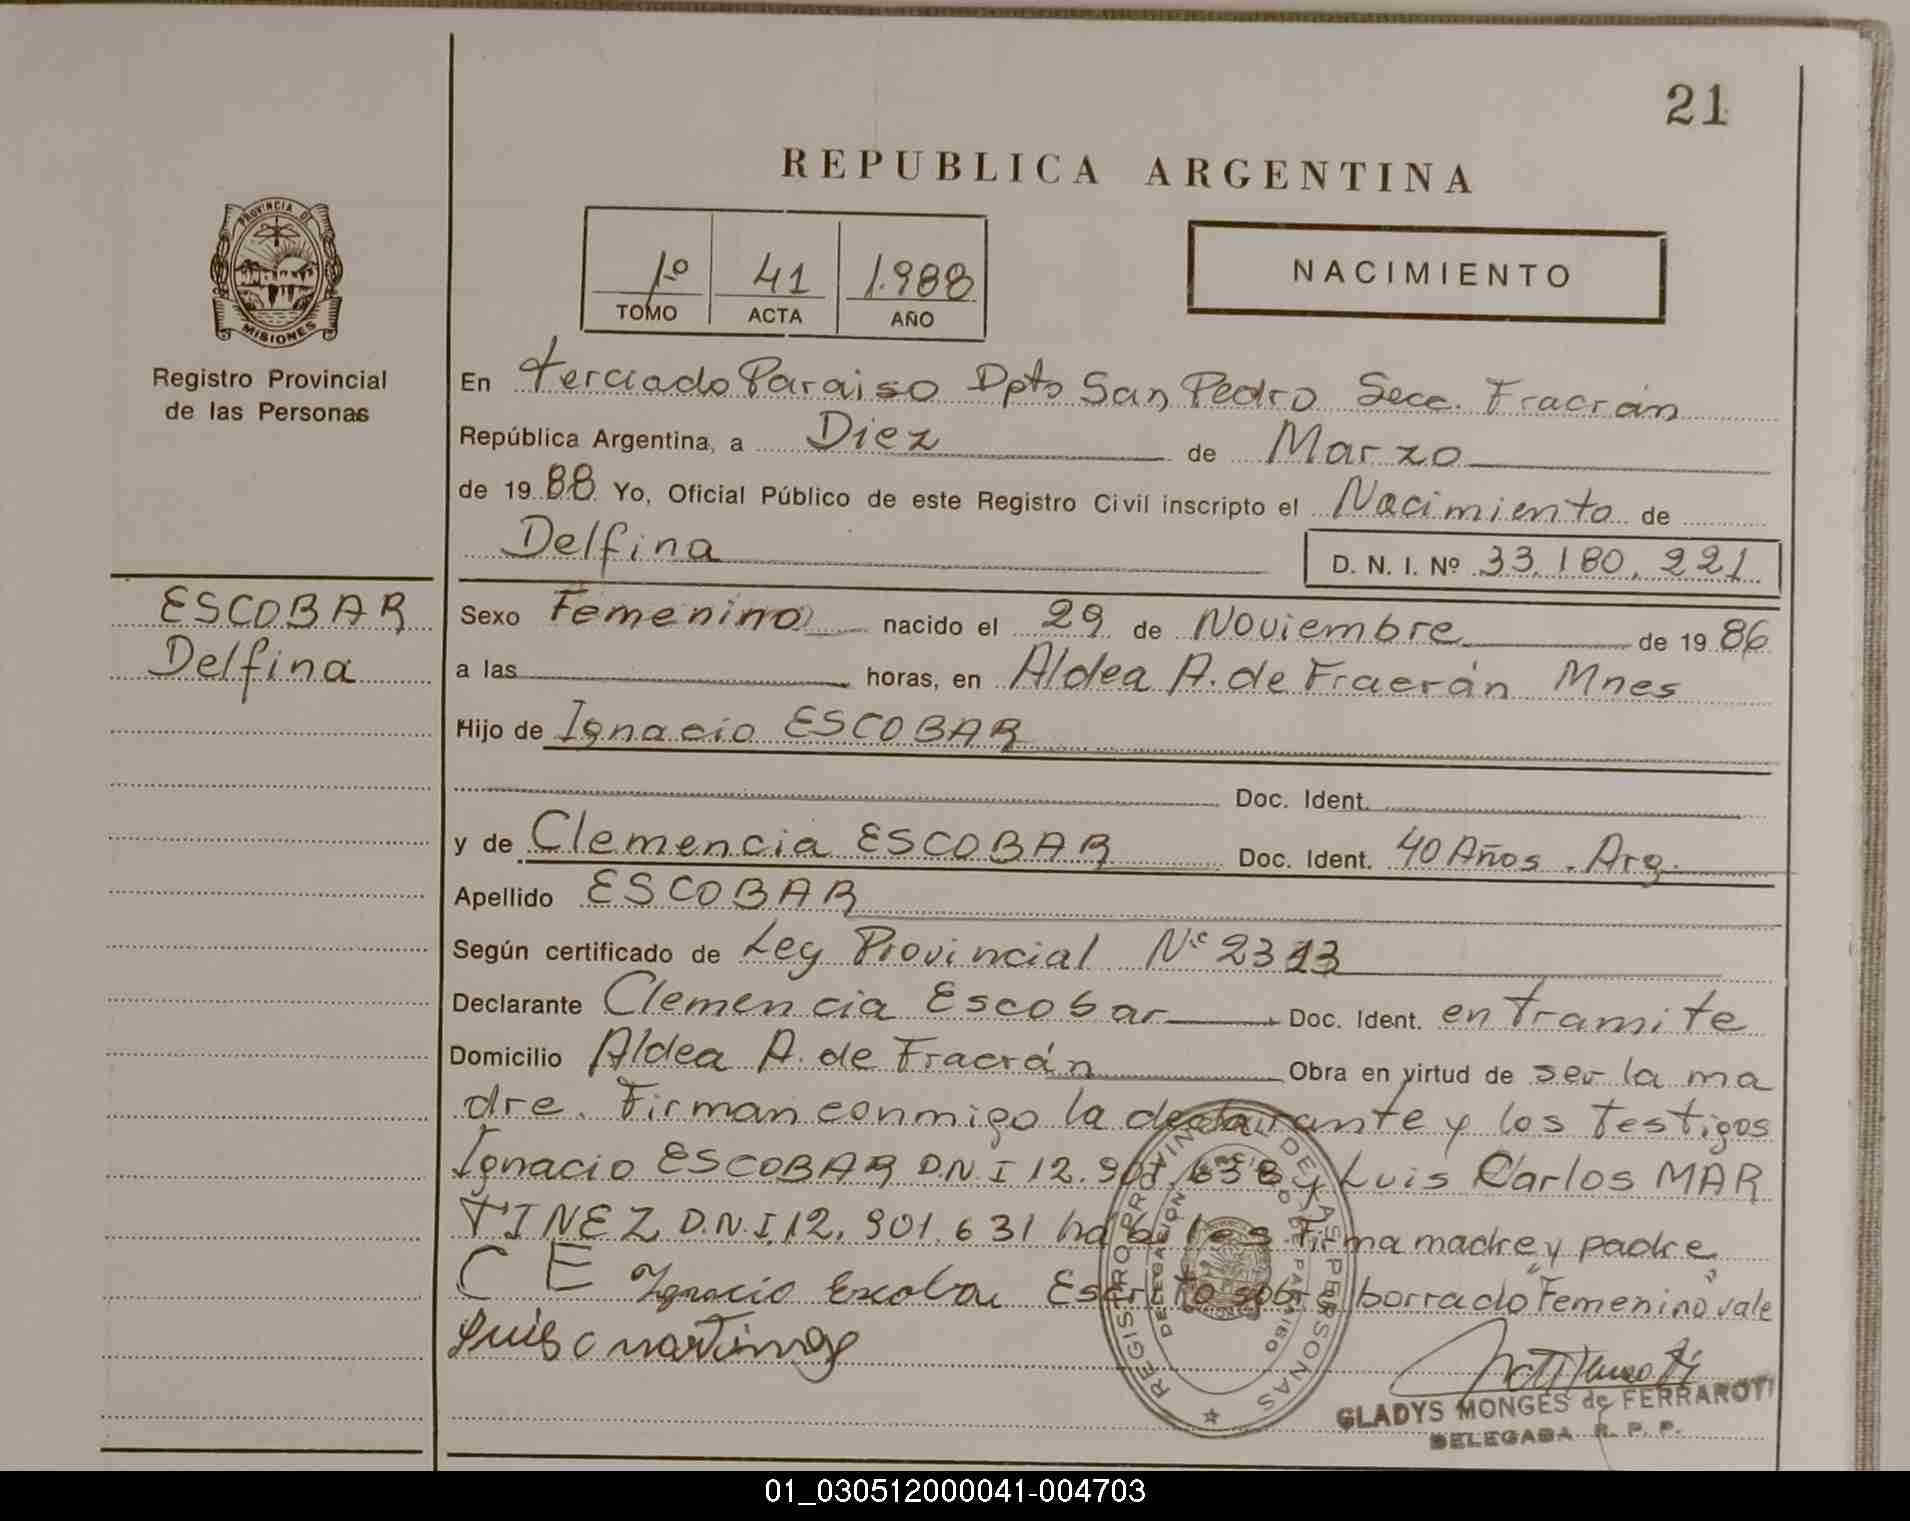 21
REPUBLICA ARGENTINA
PROVINCIA DE
MISIONES
Registro Provincial
de las Personas
1º 41 1.988
TOMO ACTA AÑO
NACIMIENTO
En Terciado Paraiso Dpto San Pedro Secc. Fracrán
República Argentina, a Diez de Marzo
de 19 88 Yo, Oficial Público de este Registro Civil inscripto el Nacimiento de
Delfina D. N. I. Nº 33.180.221
ESCOBAR
Delfina
Sexo Femenino nacido el 29 de Noviembre de 19 86
a las horas, en Aldea A. de Fracrán Mnes
Hijo de Ignacio ESCOBAR
Doc. Ident.
y de Clemencia ESCOBAR Doc. Ident. 40 Años. Arg.
Apellido ESCOBAR
Según certificado de Ley Provincial Nº 2313
Declarante Clemencia Escobar Doc. Ident. en Tramite
Domicilio Aldea A. de Fracrán Obra en virtud de ser la ma
dre. Firman conmigo la declarante y los testigos
Ignacio ESCOBAR D.N.I 12.901.638 y Luis Carlos MAR
TINEZ D.N.I.12.901.631 habiles firma madre y padre
C E Ignacio Escobar Escrito sobre borrado "Femenino" vale
Luis C martinez
REGISTRO PROVINCIAL DE LAS PERSONAS
DELEGACION
GLADYS MONGES de FERRAROTI
DELEGADA R. P. P.
01_030512000041-004703